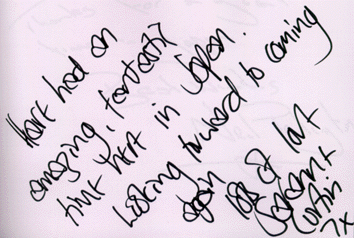 Have had an
amazing, fantastic
time here in Japan.
Looking forward to coming
again
lots of love